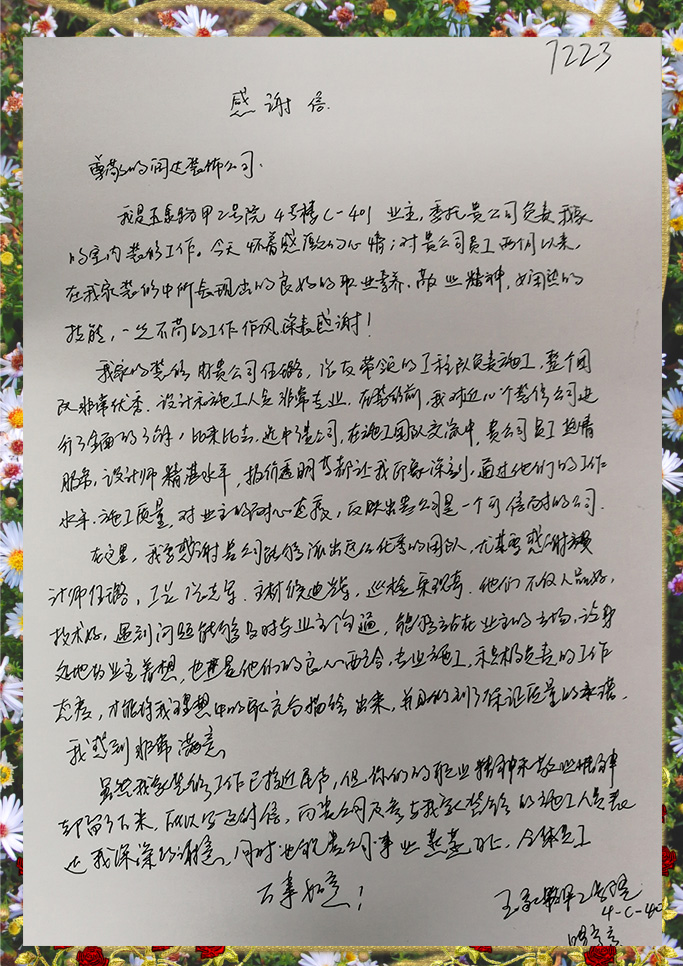 7223
感谢信
尊敬的闼达装饰公司.
我是五泉路甲2号院 4号楼C-401 业主,委托贵公司负责我家
的室内装修工作。今天怀着感激的心情,对贵公司员工两个月以来,
在我家装修中所表现出的良好的职业素养、敬业精神,娴熟的
技能,一丝不苟的工作作风深表感谢!
我家的装修由贵公司任璐,张友带领的工程队负责施工,整个团
队非常优秀.设计和施工人员非常专业.在装修前,我对近10个装修公司进
行了全面的了解,比来比去,选中贵公司,在施工团队交流中,贵公司员工热情
服务,设计师精湛水平,报价透明等都让我印象深刻,通过他们的工作
水平.施工质量,对业主的耐心态度,反映出贵公司是一个可信赖的公司.
在这里,我要感谢贵公司能够派出这么优秀的团队,尤其要感谢设
计师任璐,工长张志军.主材 巡检 他们不仅人品好,
技术好,遇到问题能够及时与业主沟通,能够站在业主的立场,设身
处地为业主着想,也正是他们的良心配合,专业施工,积极负责的工作
态度,才能将我理想中的家充分描绘出来,并且做到了保证质量的承诺.
我感到非常满意。
虽然我家装修工作已接近尾声,但你们的职业精神和敬业精神
却留了下来,所以写这封信,向贵公司及参与我家装修的施工人员表
达我深深的谢意。同时也祝贵公司事业蒸蒸日上,全体员工
万事如意!
4-C-40